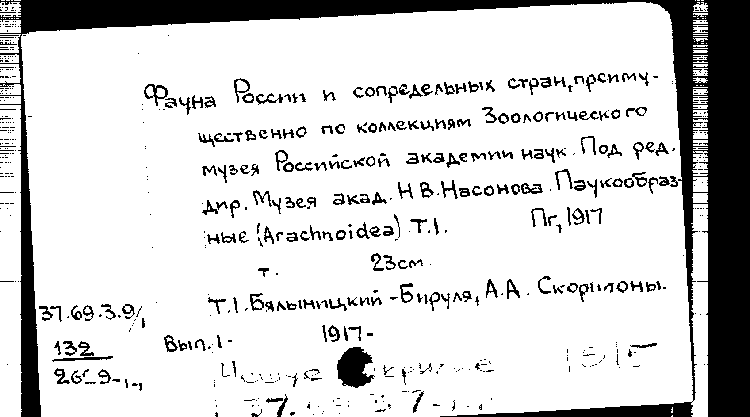 Фауна России и сопредельных стран, преиму-
щественно по коллекциям Зоологического
музея Российской академии наук. Под ред.
дир. Музея акад. Н В. Насонова. Паукообраз-
ные (Arachnoidea) Т.1. Пг, 1917
т. 23см
Т.1. Бялыницкий-Бируля, А.А. Скорпионы.
37.69.3.9/1
Вып. 1- 1917-
132
1915
37.